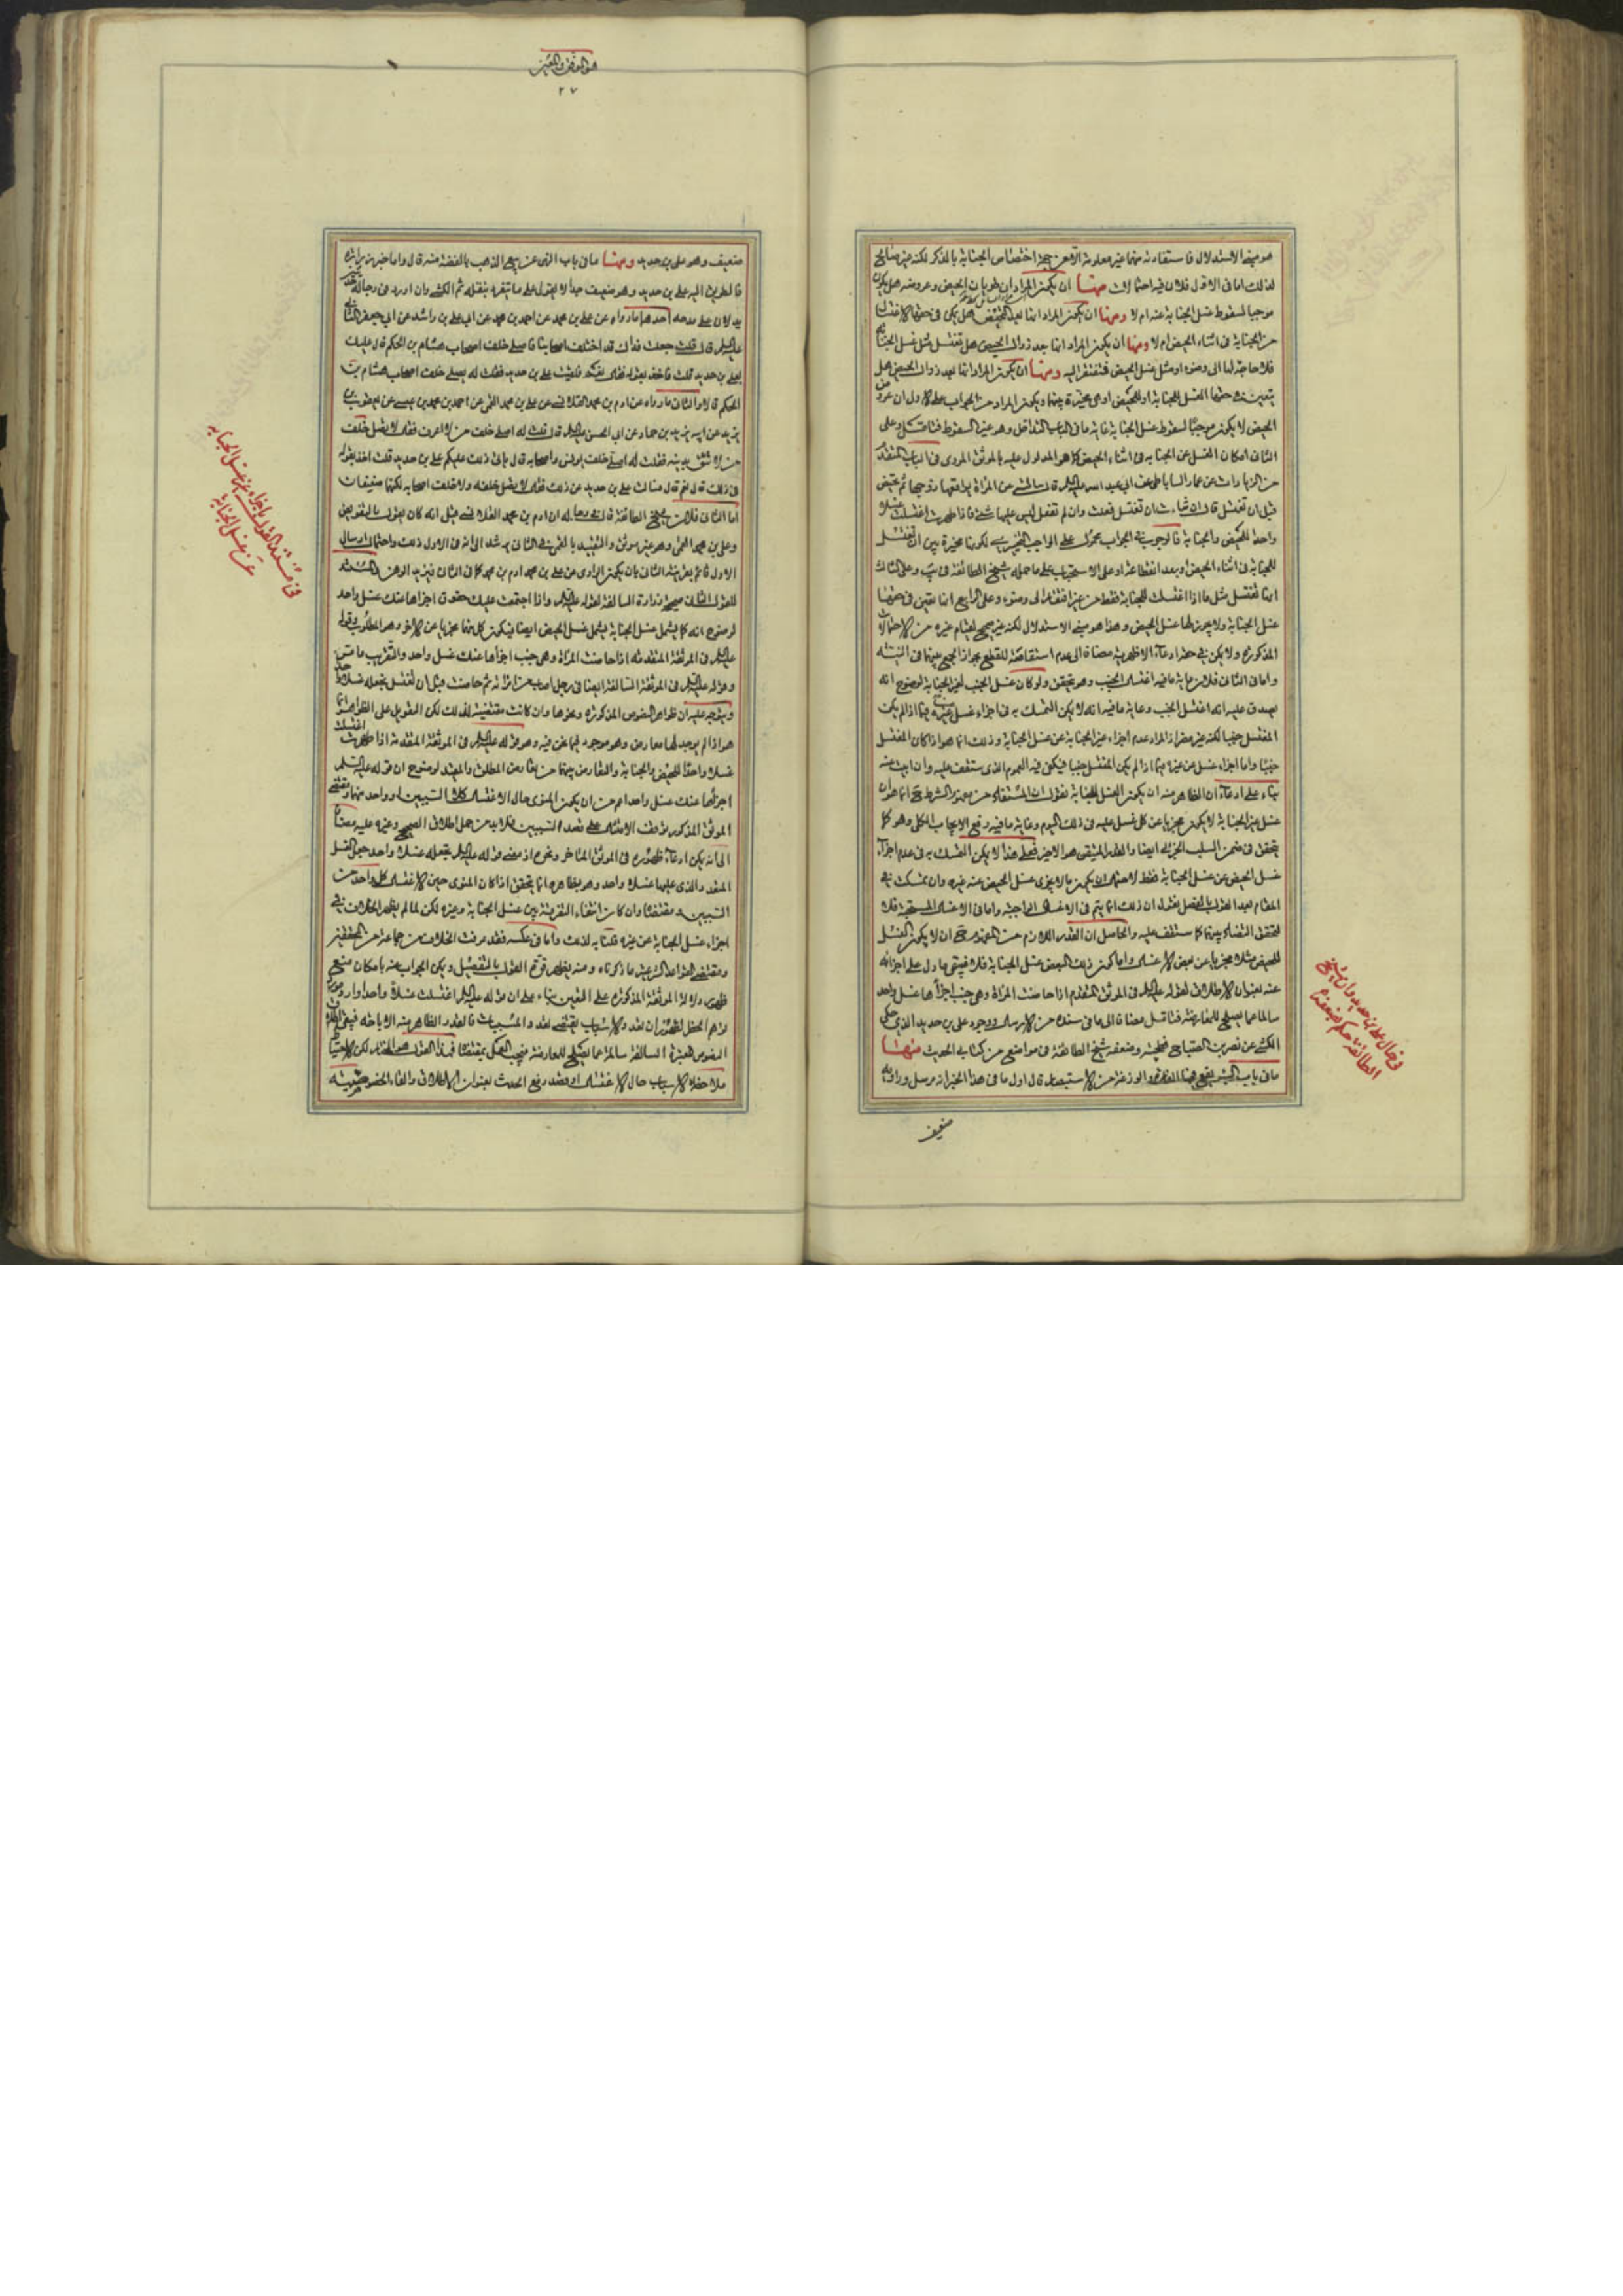 هو مبنى الاستدلال فاستفادته منها غير معلومة الا من جهة اختصاص الجنابة بالذكر لكنه غير صالح
لذلك اما فى الاول فلان فيه احتمالات منها ان يكون المراد ان طريان الحيض وعروضه هل يكون
موجبا لسقوط غسل الجنابة عنه ام لا ومنها ان يكون المراد انها بعد الحيض هل يكفى فى حقها الاغتسال
من الجنابة فى اثناء الحيض ام لا ومنها ان يكون المراد انها بعد زوال الحيض هل تغتسل مثل غسل الجنابة
فلا حاجة لها الى وضوء او مثل غسل الحيض فتفتقر اليه ومنها ان يكون المراد انها بعد زوال الحيض هل
يتعين فى حقها الغسل للجنابة او للحيض او هى مخيرة بينهما ويكون المراد من الجواب على الاول ان عروض
الحيض لا يكون موجبا لسقوط غسل الجنابة غاية ما فى الباب التداخل وهو غير السقوط فتامل وعلى
الثانى امكان الغسل عن الجنابة فى اثناء الحيض كما هو المدلول عليه بالموثق المروى فى الباب المتقدم
من الزيادات عن عمار الساباطى عن ابى عبد الله عليه السلم قال سالته عن المراة يواقعها زوجها ثم تحيض
قبل ان تغتسل قال ان شاءت ان تغتسل فعلت وان لم تفعل ليس عليها شئ فاذا طهرت اغتسلت غسلا
واحدا للحيض والجنابة فالوجوب فى الجواب محمول على الواجب التخييرى لكونها مخيرة بين ان تغتسل
للجنابة فى اثناء الحيض او بعد انقطاعه او على الاستحباب على ما حمله شيخ الطائفة فى يب وعلى الثالث
انها تغتسل مثل ما اذا اغتسلت للجنابة فقط من غير افتقار الى وضوء وعلى الرابع انها يتعين فى حقها
غسل الجنابة ولا يجوز لها غسل الحيض وهذا هو مبنى الاستدلال لكنه غير صحيح لقيام غيره من الاحتمالات
المذكورة ولا يمكن فى حقه ادعاء الاظهرية مضافا الى عدم استقامته للقطع بجواز الجمع بينهما فى النية
واما فى الثانى فلان غاية ما فيه اغتسال الجنب وهو يتحقق ولو كان غسل الجنب لغير الجنابة لوضوح انه
يصدق عليه انه اغتسل الجنب وغاية ما فيه انه لا يمكن التمسك به فى اجزاء غسل غيره فيما اذا لم يكن
المغتسل جنبا لكنه غير مضر اذ المراد عدم اجزاء غير الجنابة عن غسل الجنابة وذلك انما هو اذا كان المغتسل
جنبا واما اجزاء غسل عن غيره فيما اذا لم يكن المغتسل جنبا فيكفى فيه العموم الذى ستقف عليه وان ابيت عنه
بناء على ادعاء ان الظاهر منه ان يكون الغسل للجنابة نقول ان المستفاد من مفهوم الشرط ح انما هو ان
غسل غير الجنابة لا يكون مجزيا عن كل غسل عليه فى ذلك اليوم وغاية ما فيه رفع الايجاب الكلى وهو كما
يتحقق فى ضمن السلب الجزئى ايضا والقدر المتيقن هو الاخير فعلى هذا لا يمكن التمسك به فى عدم اجزاء
غسل الحيض عن غسل الجنابة فقط لاحتمال ان يكون ما لا يجزى غسل الحيض عنه غيره وان تمسكت فى
المقام بعدم القول بالفصل نقول ان ذلك انما يتم فى الاغسال الواجبة واما فى الاغسال المستحبة فلا
لتحقق القول بينهما كما ستقف عليه والحاصل ان القدر اللازم من المفهوم ح ان لا يكون الغسل
للحيض مثلا مجزيا عن بعض الاغسال واما كون ذلك البعض غسل الجنابة فلا فيبقى ما دل على اجزائه
عنه بعنوان الاطلاق لقوله عليه السلم فى الموثق المتقدم اذا حاضت المراة وهى جنب اجزأها غسل واحد
سالما عما يصلح للمعارضة فتامل مضافا الى ما فى سنده من الارسال ووجود على بن حديد الذى حكى
الكشى عن نصر بن الصباح فطحيته وضعفه شيخ الطائفة فى مواضع من كتابى الحديث منها
ما فى باب البئر يقع فيها الفارة والوزغة من الاستبصار قال اول ما فى هذا الخبر انه مرسل وراويه
ضعيف
فى حال على بن حديد وان شيخ
الطائفة حكم بضعفه
هو الموفق والمعين
٢٧
ضعيف وهو على بن حديد ومنها ما فى باب النهى عن بيع الذهب بالفضة منه قال واما خبر زرارة
فالطريق اليه على بن حديد وهو ضعيف جدا لا يعول على ما يتفرد بنقله ثم الكشى وان اورد فى رجاله حديثين
يدلان على مدحه احدهما ما رواه عن على بن محمد عن احمد بن محمد عن ابى على بن راشد عن ابى جعفر الثانى
عليه السلم قال قلت جعلت فداك قد اختلف اصحابنا فاصلى خلف اصحاب هشام بن الحكم قال عليك
بعلى بن حديد قلت فآخذ بقوله فقال نعم فلقيت على بن حديد فقلت له نصلى خلف اصحاب هشام بن
الحكم قال لا والثانى ما رواه عن ادم بن محمد القلانسى عن على بن محمد القمى عن احمد بن محمد بن عيسى عن يعقوب بن
يزيد عن ابيه يزيد بن حماد عن ابى الحسن عليه السلم قال قلت له اصلى خلف من لا اعرف فقال لا تصل الا خلف
من تثق بدينه فقلت له اصلى خلف يونس واصحابه قال يابى ذلك عليكم على بن حديد قلت آخذ بقوله
فى ذلك قال نعم قال فسالت على بن حديد عن ذلك فقال لا تصل خلفه ولا خلف اصحابه لكنهما ضعيفان
اما الثانى فلان شيخ الطائفة قال فى رجاله ان ادم بن محمد القلانسى قيل انه كان يقول بالتفويض
وعلى بن محمد القمى وهو غير موثق والتقييد بالقمى فى الثانى يرشد الى انه فى الاول ذلك واحتمال ارسال
للقول الثانى صحيحة زرارة السالفة لقوله عليه السلم واذا اجتمعت عليك حقوق اجزأها عنك غسل واحد
لوضوح انه كما يشمل غسل الجنابة يشمل غسل الحيض ايضا فيكون كل منهما مجزيا عن الاخر وهو المطلوب وقوله
عليه السلم فى الموثقة المتقدمة اذا حاضت المراة وهى جنب اجزأها عنك غسل واحد والتقريب ما مر
وقوله عليه السلم فى الموثقة السالفة ايضا فى رجل اصاب من امراته ثم حاضت قبل ان تغتسل تجعله غسلا واحدا
ويتوجه عليه ان ظواهر النصوص المذكورة وغيرها وان كانت مقتضية لذلك لكن التعويل على الظواهر انما
هو اذا لم يوجد لها معارض وهو موجود فيما نحن فيه وهو قوله عليه السلم فى الموثقة المتقدمة اذا طهرت اغتسلت
غسلا واحدا للحيض والجنابة والتعارض بينهما من تعارض المطلق والمقيد لوضوح ان قوله عليه السلم
اجزأها عنك غسل واحد اعم من ان يكون المنوى حال الاغتسال كلا السببين او واحد منهما ومقتضى
الموثق المذكور توقف الامتثال على قصد السببين فلا بد من حمل اطلاق الصحيح وغيره عليه مضافا
الى انه يمكن ادعاء ظهوره فى الموثق المتاخر ونحوه اذ معنى قوله عليه السلم يجعله غسلا واحد جعل الغسل
المتعدد الذى عليها غسلا واحد وهو بظاهره انما يتحقق اذا كان المنوى حين الاغتسال كل واحد من
السببين ومقتضاه وان كان انتفاء التفرقة بين غسل الجنابة وغيره لكن لما لم يظهر الخلاف فى
اجزاء غسل الجنابة عن غيره قلنا به لذلك واما فى عكسه فقد عرفت الخلاف من جماعة من المحققين
ومقتضى القواعد الشرعية ما ذكرناه ومنه يظهر قوة القول بالتفصيل ويمكن الجواب عنه بامكان منع
ظهور دلالة الموثقة المذكورة على التعيين بناء على ان قوله عليه السلم اغتسلت غسلا واحدا وارد مورد
توهم الحظر لتخيل ان تعدد الاسباب يقتضى تعدد المسببات فالقدر الظاهر منه الاباحة فيبقى اطلاق
النصوص المعتبرة السالفة سالما عما يصلح للمعارضة فيجب العمل بمقتضاه فهذا القول هو المختار لكن الاحتياط
ملاحظة الاسباب حال الاغتسال او قصد رفع الحدث بعنوان الاطلاق والغاء الخصوصية
فى مستند القول باجزاء غير غسل الجنابة
عن غسل الجنابة